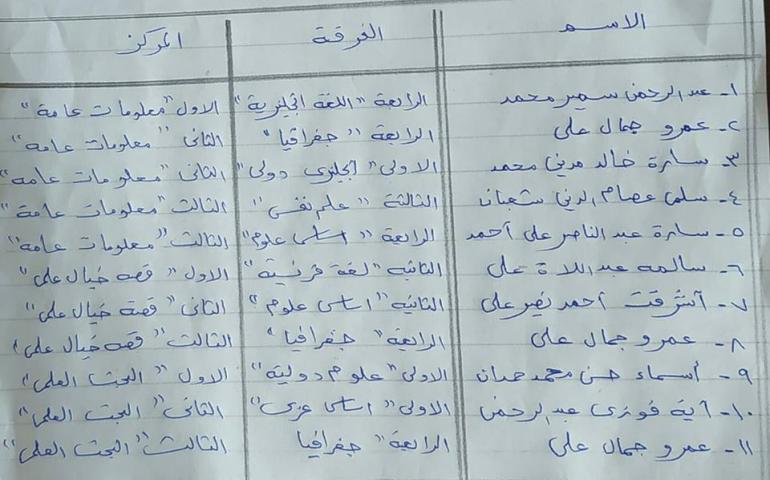 الاسم الفرقة المركز
١- عبدالرحمن سمير محمد الرابعة "اللغة انجليزية" الاول "معلومات عامة"
٢- عمرو جمال على الرابعة "جغرافيا" الثانى "معلومات عامه"
٣- سارة خالد مدنى محمد الاولى "انجليزى دولى" الثانى "معلومات عامه"
٤- سلمى عصام الدين شعبان الثالثة "علم نفس" الثالث "معلومات عامة"
٥- سارة عبد الناصر على أحمد الرابعة "اساسى علوم" الثالث "معلومات عامة"
٦- سالمه عبد على الثانيه "لغة فرنسية" الاول "قصة خيال علمى"
٧- أشرقت أحمد نصر على الثانية "اساسى علوم" الثانى "قصة خيال علمى"
٨- عمرو جمال على الرابعة "جغرافيا" الثالث "قصه خيال علمى"
٩- أسماء حسن محمد حسان الاولى "علوم دولية" الاول "البحث العلمى"
١٠- آية فوزى عبدالرحمن الاولى "اساسى عربى" الثانى "البحث العلمى"
١١- عمرو جمال على الرابعة "جغرافيا الثالث "البحث العلمى"